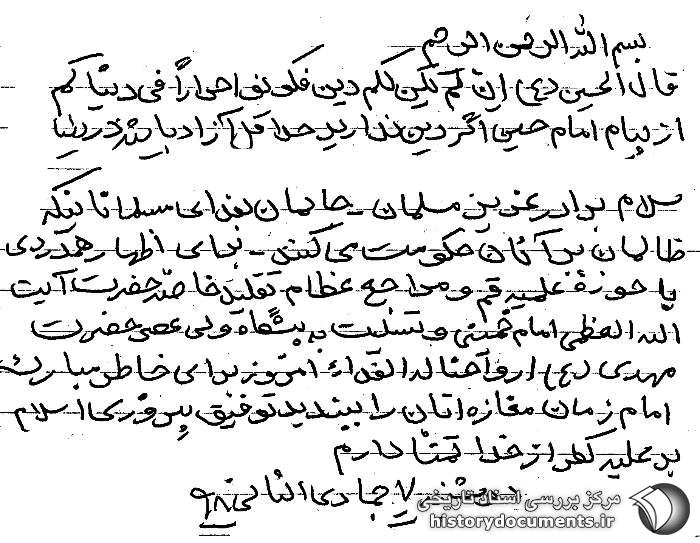 بسم الله الرحمن الرحیم
قال الحسین (ع) ان لم یکن لکم دین فکونو احراراً فی دنیاکم
از پیام امام حسین اگر دین ندارید حداقل آزاد باشید در دنیا
سلام برادر عزیز مسلمان - جانمان فدای مسلمانانیکه
ظالمان بر آنان حکومت می کنند - برای اظهار همدردی
با حوزهٔ علمیه قم و مراجع عظام تقلید خاصه حضرت آیت
الله العظمی امام خمینی و تسلیت به پیشگاه ولی عصر حضرت
مهدی (ع) ارواحنا له الفداء امروز برای خاطر مبارک
امام زمان مغازه اتان را ببندید توفیق پیروزی اسلام
بر علیه کفر از خدا تمنا دارم
دوشنبه ۷ جمادی الثانی ۹۸
مرکز بررسی اسناد تاریخی
historydocuments.ir